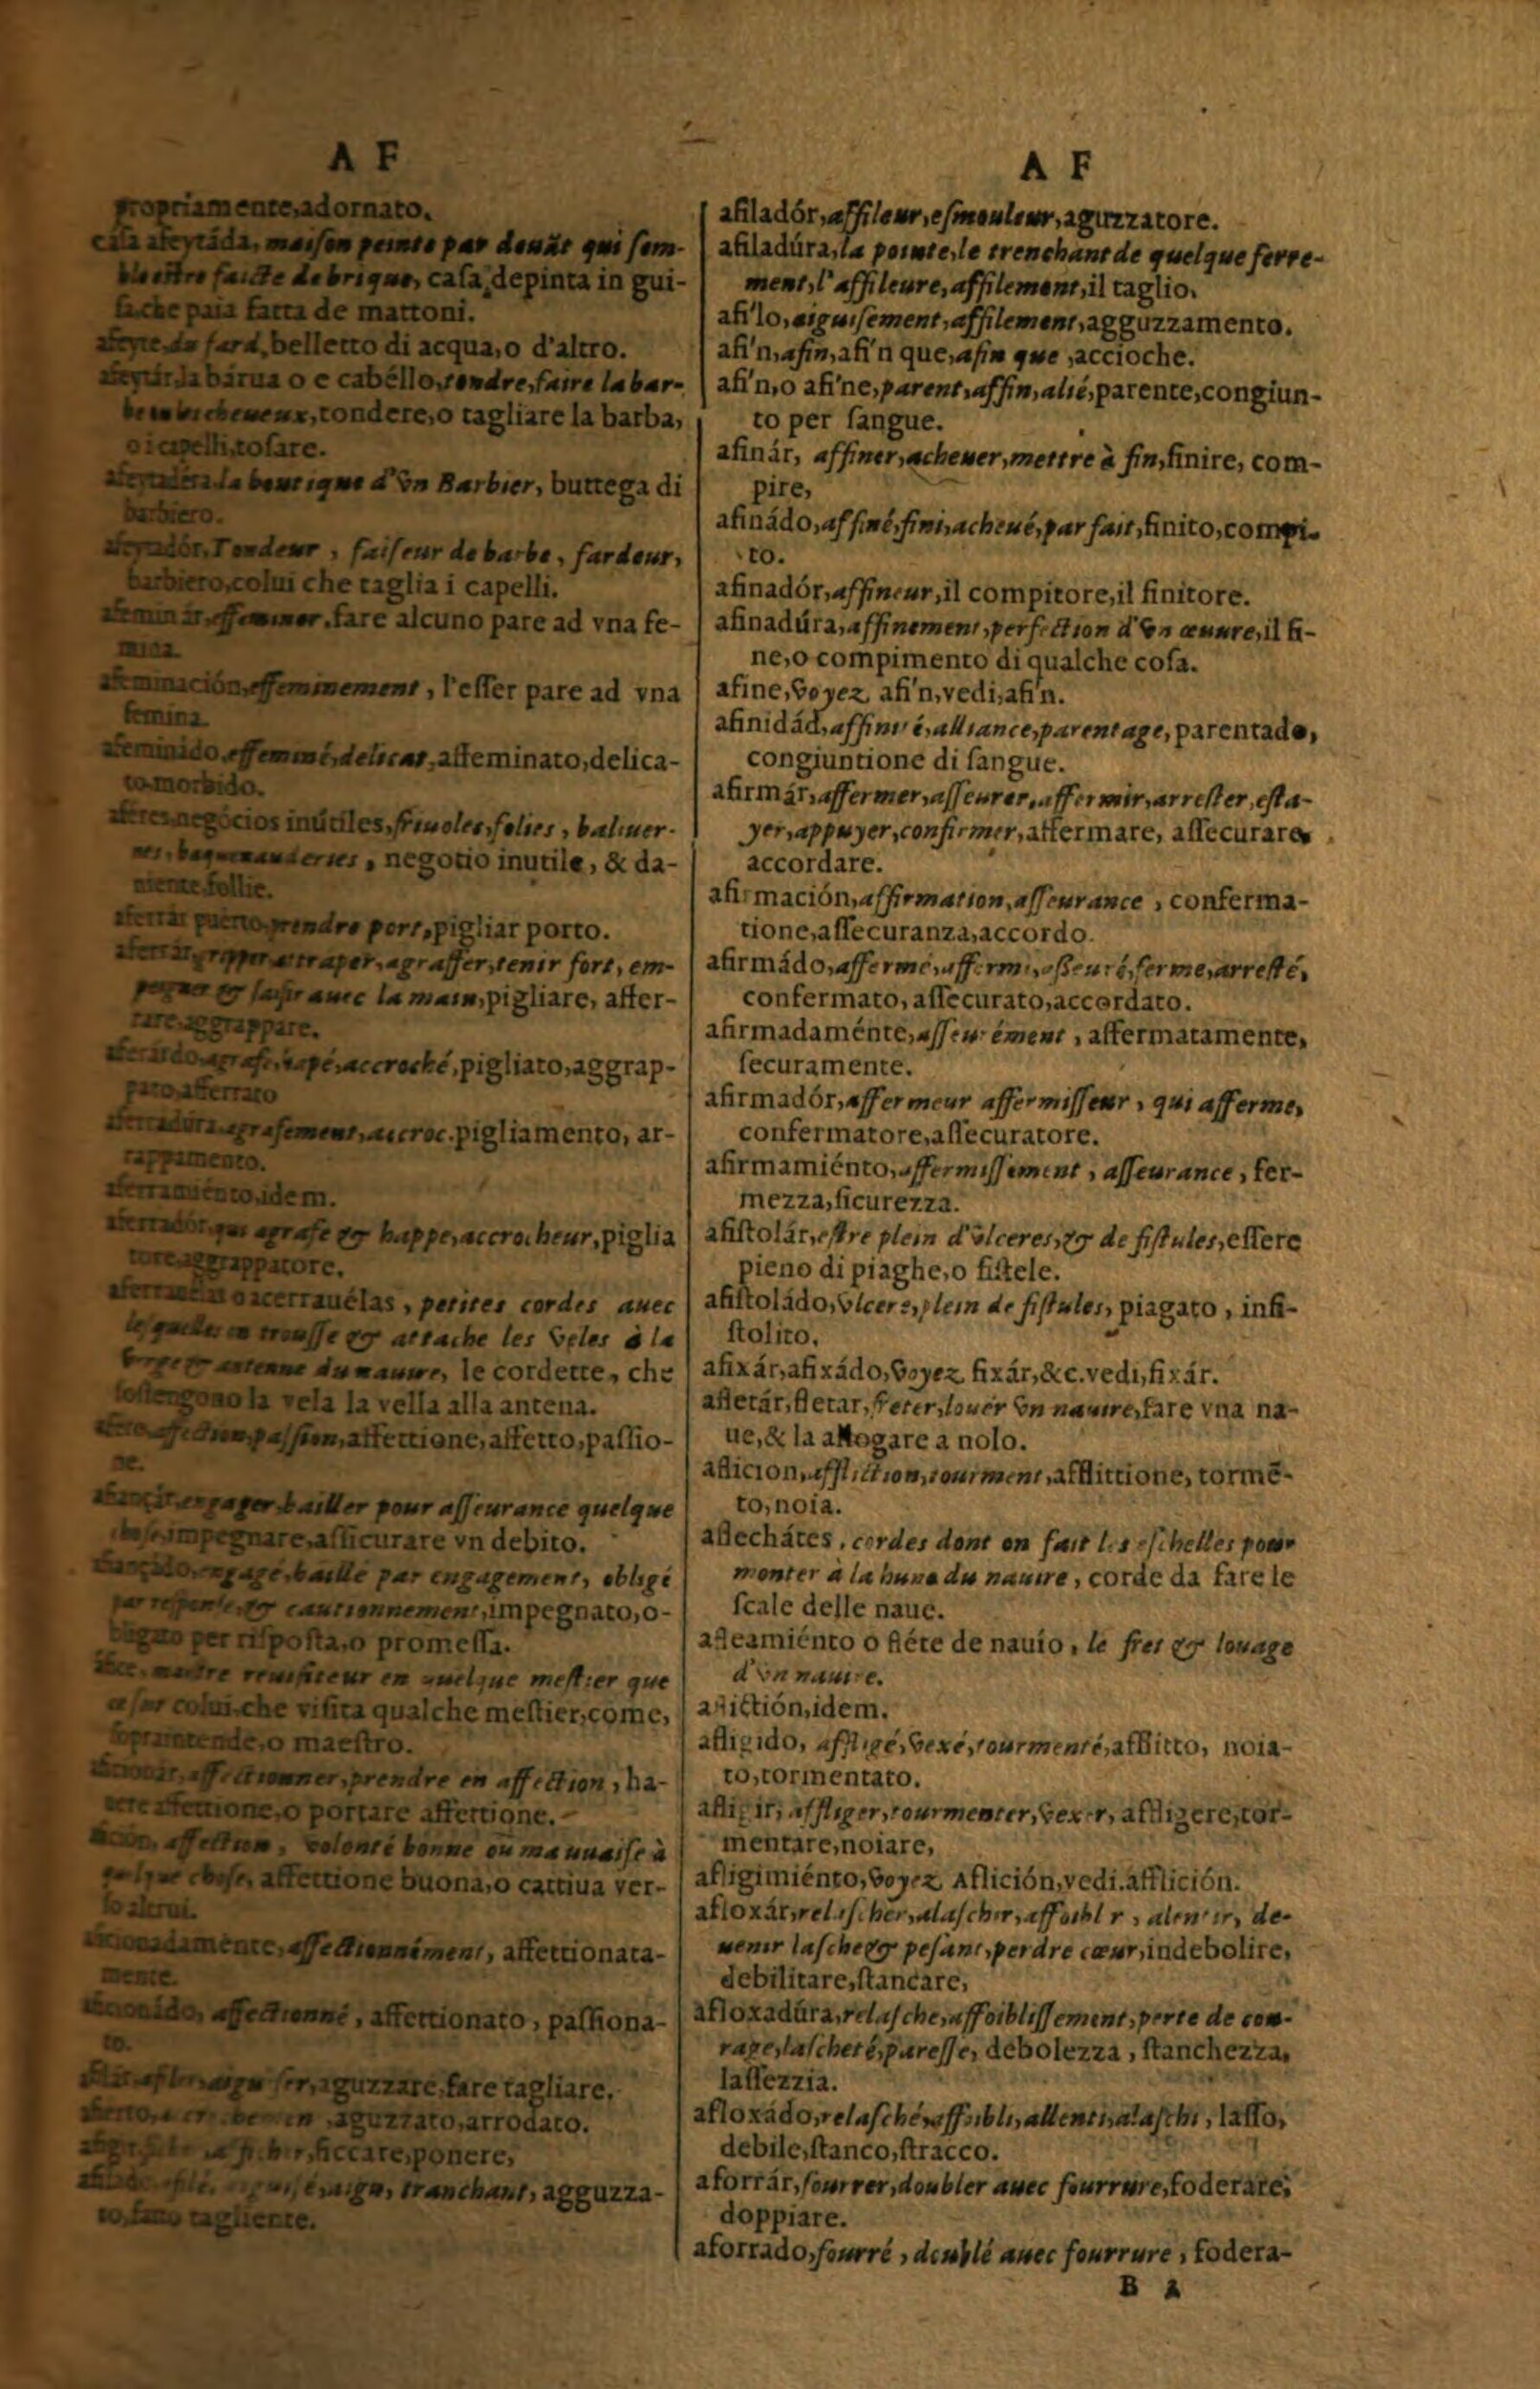 A F
propriamente,adornato.
casa afeytáda, maison peinte par deuãt qui sem-
ble estre faicte de brique, casa, depinta in gui-
sa,che paia fatta de mattoni.
afeyte,du fard,belletto di acqua,o d'altro.
afeytár,la bárua o e cabéllo,tondre,faire la bar-
be ou les cheueux,tondere,o tagliare la barba,
o i capelli,tosare.
la boutique d'vn Barbier, buttega di
barbiero.
Tondeur , faiseur de barbe , fardeur,
barbiero,colui che taglia i capelli.
afeminár,effeminer,fare alcuno pare ad vna fe-
mina.
afeminación,effeminement , l'esser pare ad vna
femina.
afemináido,effeminé,delicat,affeminato,delica-
to,morbido.
aféres,negócios inútiles,friuoles,folies , baliuer-
nes, baguenauderies , negotio inutile, & da-
niente,follie.
aferrár puerto,prendre port,pigliar porto.
aferrár,gripper,attraper,agraffer,tenir fort, em-
poigner & saisir auec la main,pigliare, affer-
rare,aggrappare.
accroché,pigliato,aggrap-
pato,afferrato
aferradúra,agrafement,accroc.pigliamento, ar-
rappamento.
aferramiénto,idem.
aferradór,qui agrafe & happe,accrocheur,piglia
tore,aggrappatore.
o acerrauélas , petites cordes auec
lesquelles on trousse & attache les veles à la
verge & antenne du nauire, le cordette, che
sostengono la vela la vella alla antena.
affection,passion,affettione,affetto,passio-
ne.
engager,bailler pour asseurance quelque
chose,impegnare,assicurare vn debito.
engagé,baillé par engagement, obligé
par & cautionnement,impegnato,o-
bligato per risposta,o promessa.
maistre reuisiteur en quelque mestier que
ce soit colui,che visita qualche mestier,come,
sopraintende,o maestro.
aficionár,affectionner,prendre en affection , ha-
uere affettione,o portare affettione.
afición, affection, volonté bonne ou mauuaise à
quelque chose, affettione buona,o cattiua ver-
so altrui.
aficionadaménte,affectionnément, affettionata-
mente.
aficionádo, affectionné , affettionato , passiona-
to.
aguzzare,fare tagliare.
aguzzato,arrodato.
ficcare,ponere,
aigu, tranchant, agguzza-
to,fatto tagliente.
A F
afiladór,affileur,esmouleur,aguzzatore.
afiladúra,la pointe,le trenchant de quelque ferre-
ment,l'affileure,affilement,il taglio.
afi'lo,aiguisement,affilement,agguzzamento.
afi'n,afin,afi'n que,afin que ,accioche.
afi'n,o afi'ne,parent,affin,alié,parente,congiun-
to per sangue.
afinár, affiner,acheuer,mettre à fin,finire, com-
pire,
afinádo,affiné,fini,acheué,parfait,finito,compi-
to.
afinadór,affineur,il compitore,il finitore.
afinadúra,affinement,perfection d'vn œuure,il fi-
ne,o compimento di qualche cosa.
afine,voyez afi'n,vedi,afi'n.
afinidád,affinité,alliance,parentage, parentado,
congiuntione di sangue.
afirmár,affermer,asseurer,affermir,arrester,esta-
yer,appuyer,confirmer,affermare, assecurare,
accordare.
afirmación,affirmation,asseurance , conferma-
tione,assecuranza,accordo.
afirmádo,affermé,affermi,asseuré,ferme,arresté,
confermato, assecurato,accordato.
afirmadaménte,asseurément , affermatamente,
securamente.
afirmadór,affermeur affermisseur , qui afferme,
confermatore,assecuratore.
afirmamiénto,affermissement , asseurance , fer-
mezza,sicurezza.
afistolár,estre plein d'vlceres,& de fistules,essere
pieno di piaghe,o fistele.
afistoládo,vlceré,plein de fistules, piagato , infi-
stolito.
afixár,afixádo,voyez fixár,&c.vedi,fixár.
afletár,fletar,freter,louër vn nauire,fare vna na-
ue,& la allogare a nolo.
aflicion,affliction,tourment,afflittione, tormẽ-
to,noia.
aflechátes, cordes dont on fait les eschelles pour
monter à la hune du nauire , corde da fare le
scale delle naue.
afleamiénto o fléte de nauío , le fret & louage
d'vn nauire.
aflictión,idem.
afligido, affligé,vexé,tourmenté,afflitto, noia-
to,tormentato.
afligir, affliger,tourmenter,vexer, affligere,tor-
mentare,noiare,
afligimiénto,voyez Aflición,vedi.afflición.
afloxár,relascher,alaschir,affoiblir , alentir, de-
uenir lasche & pesant,perdre cœur,indebolire,
debilitare,stancare,
afloxadúra,relasche,affoiblissement,perte de cou-
rage,lascheté,paresse, debolezza , stanchezza,
lassezzia.
afloxádo,relasché,affoibli,allenti,alaschi , lasso,
debile,stanco,stracco.
aforrár,fourrer,doubler auec fourrure,foderare,
doppiare.
aforrado,fourré , doublé auec fourrure , fodera-
B 2